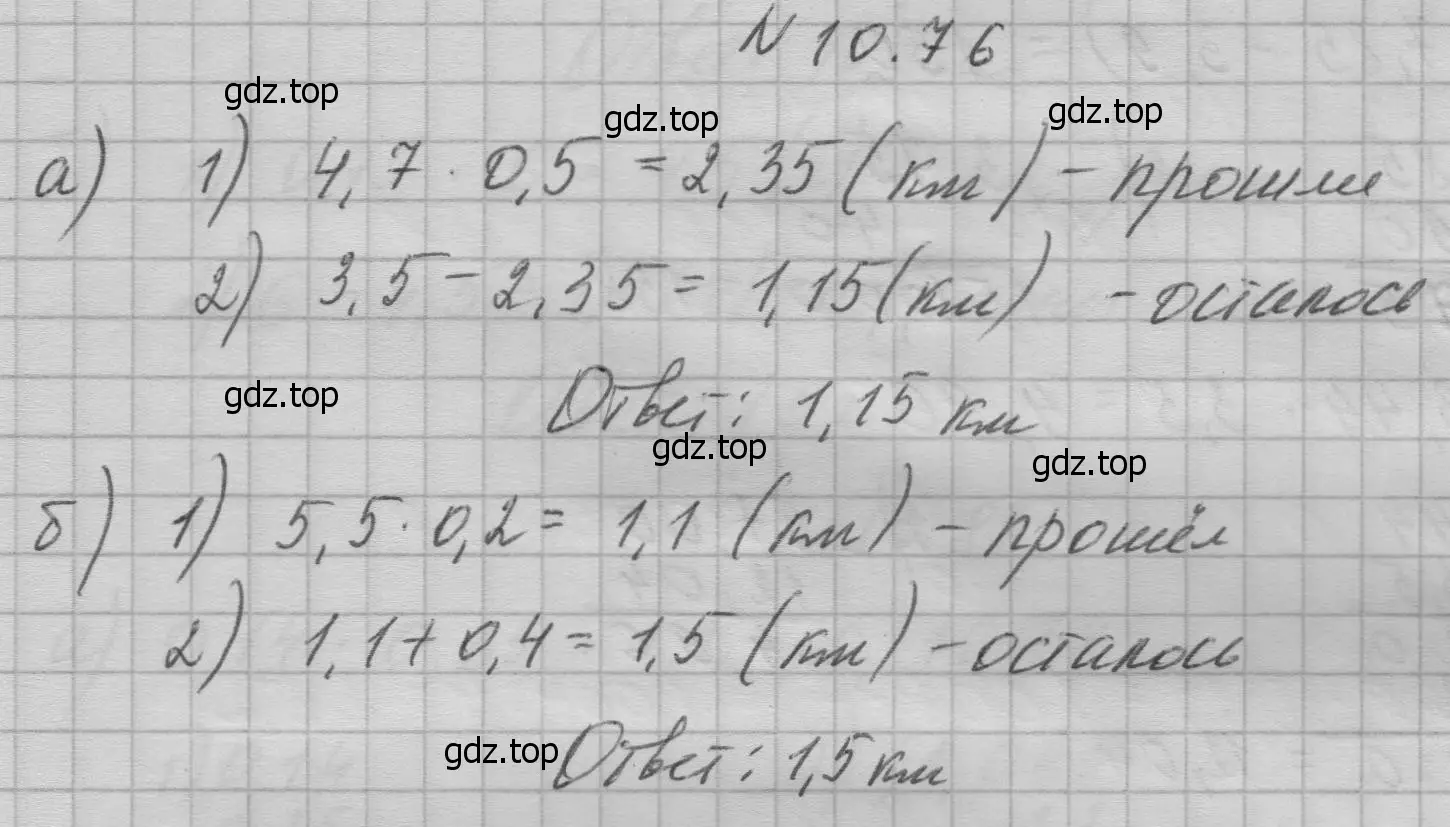 N 10.76
gdz.top gdz.top gdz.top
а) 1) 4,7 · 0,5 = 2,35 (км) - прошли
2) 3,5 - 2,35 = 1,15 (км) - осталось
gdz.top
Ответ: 1,15 км
gdz.top gdz.top
б) 1) 5,5 · 0,2 = 1,1 (км) - прошёл
2) 1,1 + 0,4 = 1,5 (км) - осталось
gdz.top
Ответ: 1,5 км